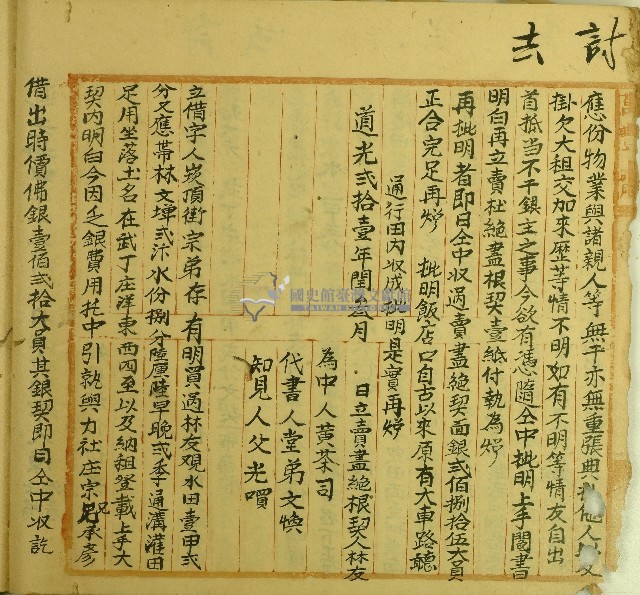 討
去
應份物業與諸親人等無干亦無重張典掛他人以及
掛欠大租交加來歷等情不明如有不明等情友自出
首抵当不干銀主之事今欲有憑隨仝中批明上手鬮書
明白再立賣杜絕盡根契壹紙付執為炤
再批明者即日仝中收過賣盡絕契面銀弍佰捌拾伍大員
正合完足再炤 批明飯店口自古以來原有大車路聽
通行田內收成 明是實再炤
道光弍拾壹年閏叁月 日立賣盡絕根契人林友
為中人黃茶司
代書人堂弟文煥
知見人父光嘪
立借字人崁頂街宗弟存 有明買過林友观水田壹甲弍
分又應帶林文埤弍汴水份捌分陸厘陸早晚弍季通溝灌田
足用坐落土名在武丁庄洋東西四至以及納租登載上手大
契內明白今因乏銀費用托中引就與力社庄宗兄承彥
借出時價佛銀壹佰弍拾大員其銀契即日仝中收訖
國史館臺灣文獻館